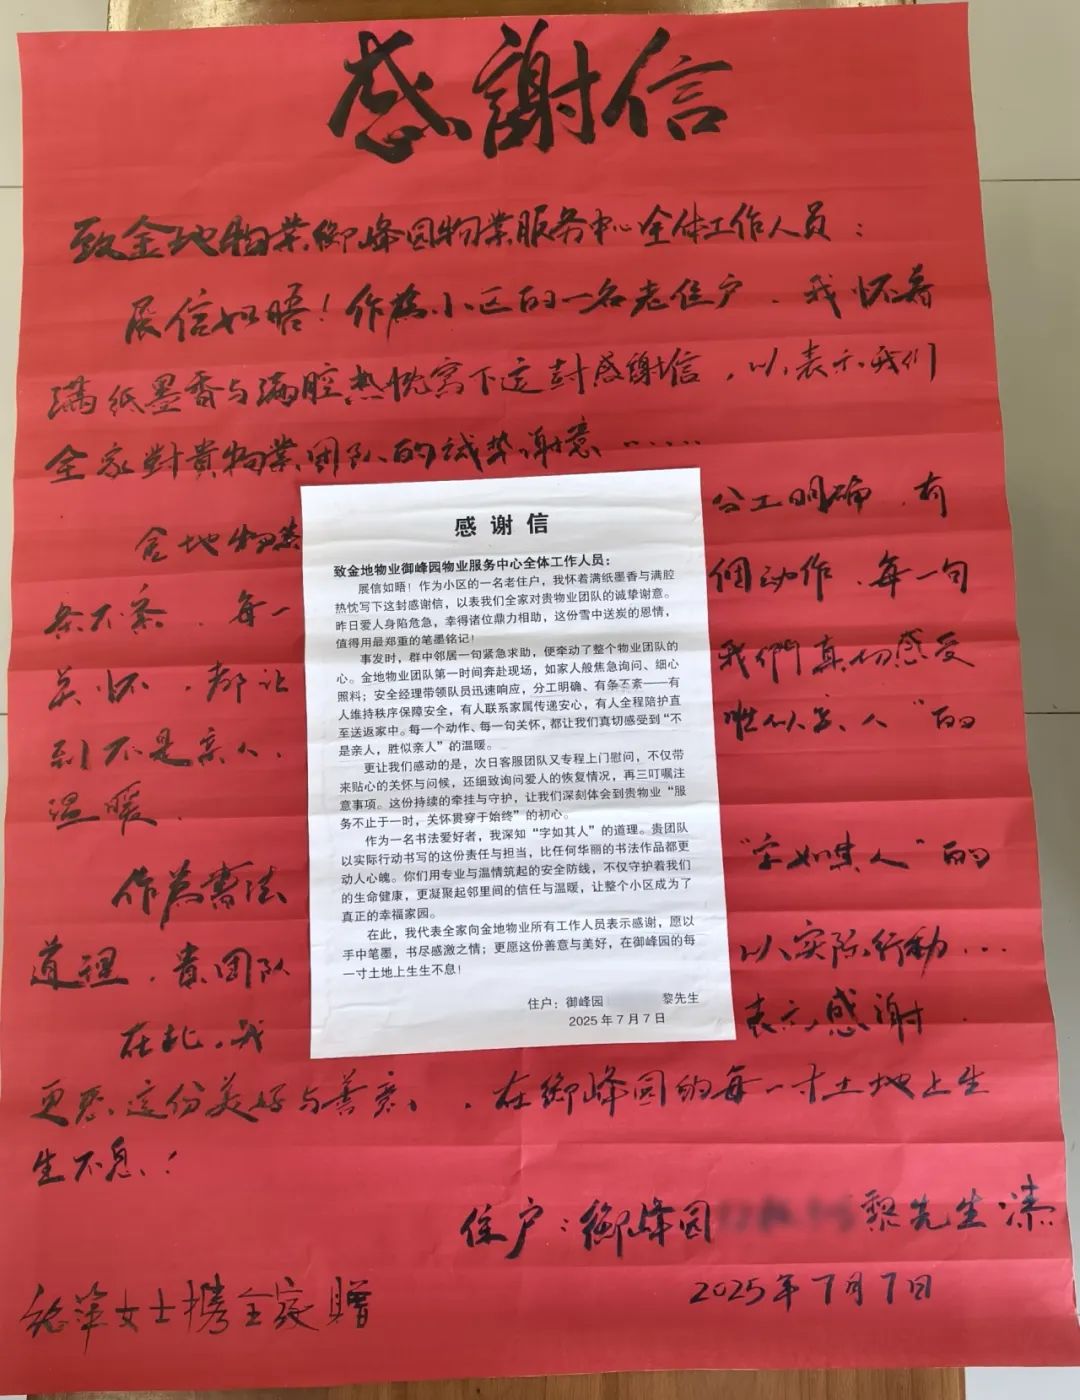 感謝信
致金地物业御峰园物业服务中心全体工作人员：
展信如晤！作為小区的一名老住户，我怀着
满纸墨香与满腔热忱写下这封感谢信，以表示我们
全家對貴物業团队的诚挚谢意……
金地物業
分工明确，有
条不紊，每一
個动作，每一句
关怀，都让
我們真切感受
到不是亲人，
胜似亲人”的
温暖，
作為書法
“字如其人”的
道理，贵团队
以实际行动…
在此，我
表示感谢，
更愿这份美好与善意，在御峰园的每一寸土地上生
生不息！
住户：御峰园
黎先生
2025年7月7日
女士携全家贈
感谢信
致金地物业御峰园物业服务中心全体工作人员：
展信如晤！作为小区的一名老住户，我怀着满纸墨香与满腔
热忱写下这封感谢信，以表我们全家对贵物业团队的诚挚谢意。
昨日爱人身陷危急，幸得诸位鼎力相助，这份雪中送炭的恩情，
值得用最郑重的笔墨铭记！
事发时，群中邻居一句紧急求助，便牵动了整个物业团队的
心。金地物业团队第一时间奔赴现场，如家人般焦急询问、细心
照料；安全经理带领队员迅速响应，分工明确、有条不紊——有
人维持秩序保障安全，有人联系家属传递安心，有人全程陪护直
至送返家中。每一个动作、每一句关怀，都让我们真切感受到“不
是亲人，胜似亲人”的温暖。
更让我们感动的是，次日客服团队又专程上门慰问，不仅带
来贴心的关怀与问候，还细致询问爱人的恢复情况，再三叮嘱注
意事项。这份持续的牵挂与守护，让我们深刻体会到贵物业“服
务不止于一时，关怀贯穿于始终”的初心。
作为一名书法爱好者，我深知“字如其人”的道理。贵团队
以实际行动书写的这份责任与担当，比任何华丽的书法作品都更
动人心魄。你们用专业与温情筑起的安全防线，不仅守护着我们
的生命健康，更凝聚起邻里间的信任与温暖，让整个小区成为了
真正的幸福家园。
在此，我代表全家向金地物业所有工作人员表示感谢，愿以
手中笔墨，书尽感激之情；更愿这份善意与美好，在御峰园的每
一寸土地上生生不息！
住户：御峰园 黎先生
2025年7月7日